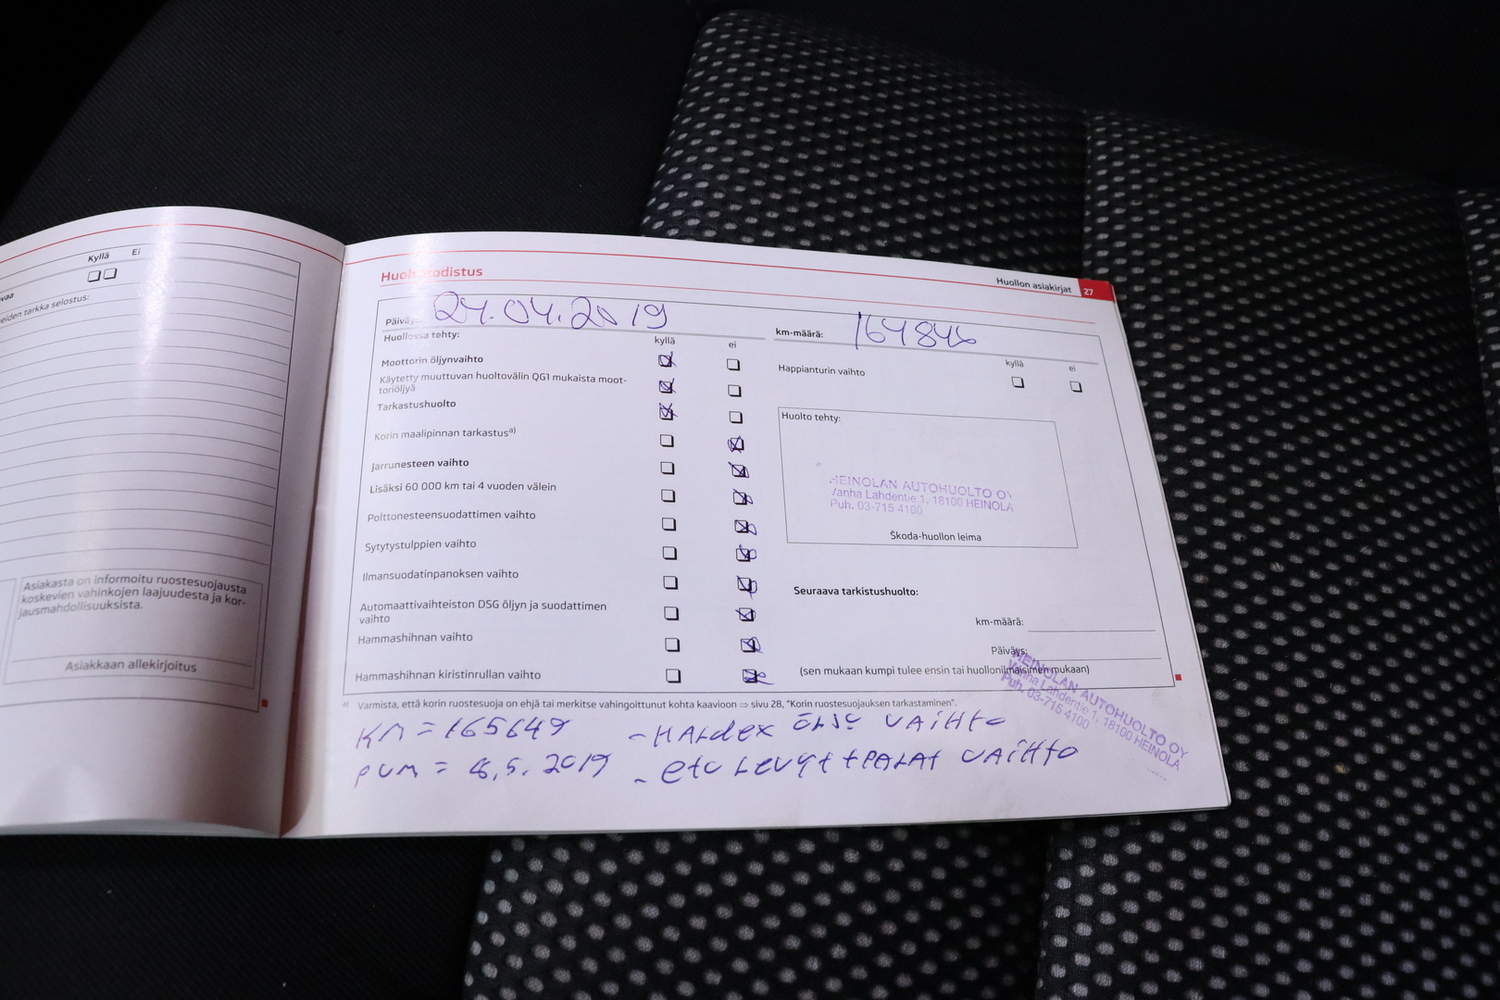 Kyllä Ei
vaa
eiden tarkka selostus:
Asiakasta on informoitu ruostesuojausta
koskevien vahinkojen laajuudesta ja kor-
jausmahdollisuuksista.
Asiakkaan allekirjoitus
Huoltotodistus
Huollon asiakirjat 27
Päiväys: 24.04.2019
km-määrä: 164846
Huollossa tehty:
kyllä ei
Moottorin öljynvaihto
Käytetty muuttuvan huoltovälin QG1 mukaista moot-
toriöljyä
Tarkastushuolto
Korin maalipinnan tarkastus a)
Jarrunesteen vaihto
Lisäksi 60 000 km tai 4 vuoden välein
Polttonesteensuodattimen vaihto
Sytytystulppien vaihto
Ilmansuodatinpanoksen vaihto
Automaattivaihteiston DSG öljyn ja suodattimen
vaihto
Hammashihnan vaihto
Hammashihnan kiristinrullan vaihto
kyllä ei
Happianturin vaihto
Huolto tehty:
HEINOLAN AUTOHUOLTO OY
Vanha Lahdentie 1, 18100 HEINOLA
Puh. 03-715 4100
Škoda-huollon leima
Seuraava tarkistushuolto:
km-määrä:
Päiväys:
(sen mukaan kumpi tulee ensin tai huollonilmaisimen mukaan)
a) Varmista, että korin ruostesuoja on ehjä tai merkitse vahingoittunut kohta kaavioon ⇒ sivu 28, "Korin ruostesuojauksen tarkastaminen".
HEINOLAN AUTOHUOLTO OY
Vanha Lahdentie 1, 18100 HEINOLA
Puh. 03-715 4100
KM = 165649 - HALdex öLJY VAiHto
PVM = 8.5.2019 - etu Levyt + PALAt VAiHto